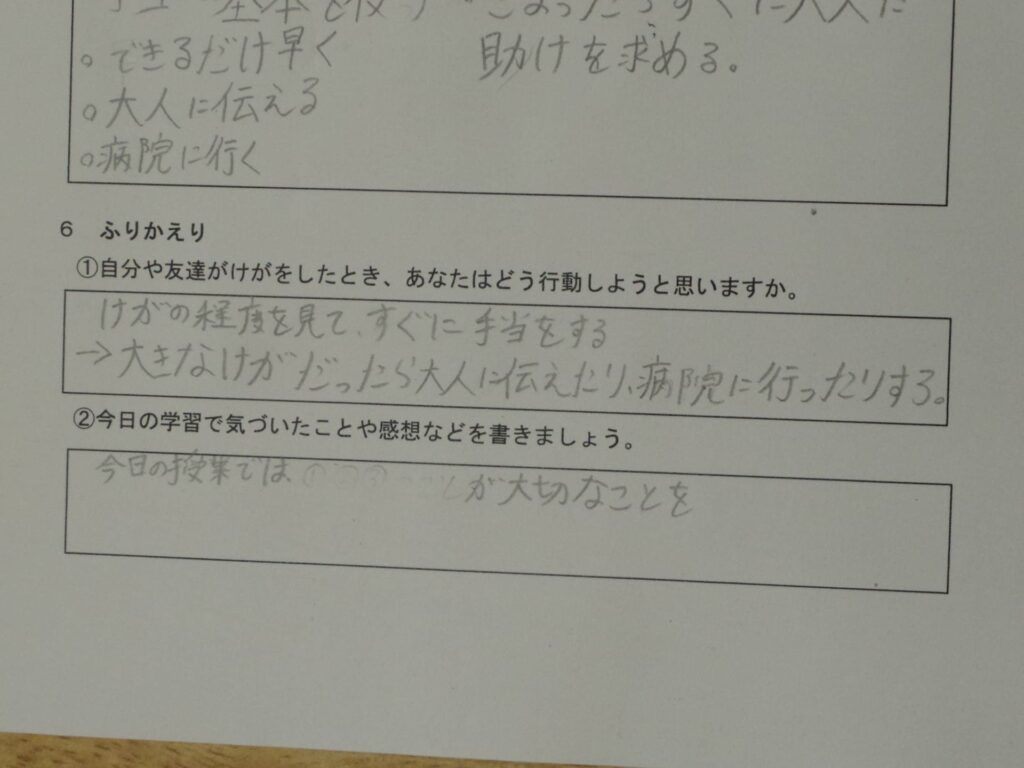 基本を
すぐに大人に
○できるだけ早く
助けを求める。
○大人に伝える
○病院に行く
6 ふりかえり
①自分や友達がけがをしたとき、あなたはどう行動しようと思いますか。
けがの程度を見て、すぐに手当をする
→大きなけがだったら大人に伝えたり、病院に行ったりする。
②今日の学習で気づいたことや感想などを書きましょう。
今日の授業では が大切なことを